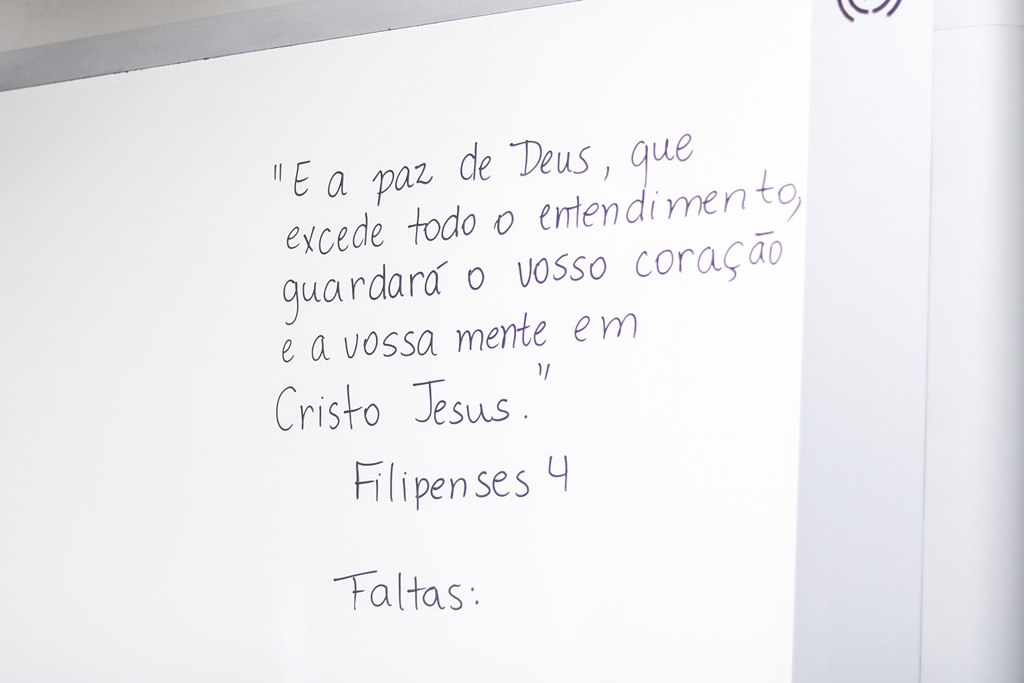 "E a paz de Deus, que
excede todo o entendimento,
guardará o vosso coração
e a vossa mente em
Cristo Jesus."
Filipenses 4
Faltas: